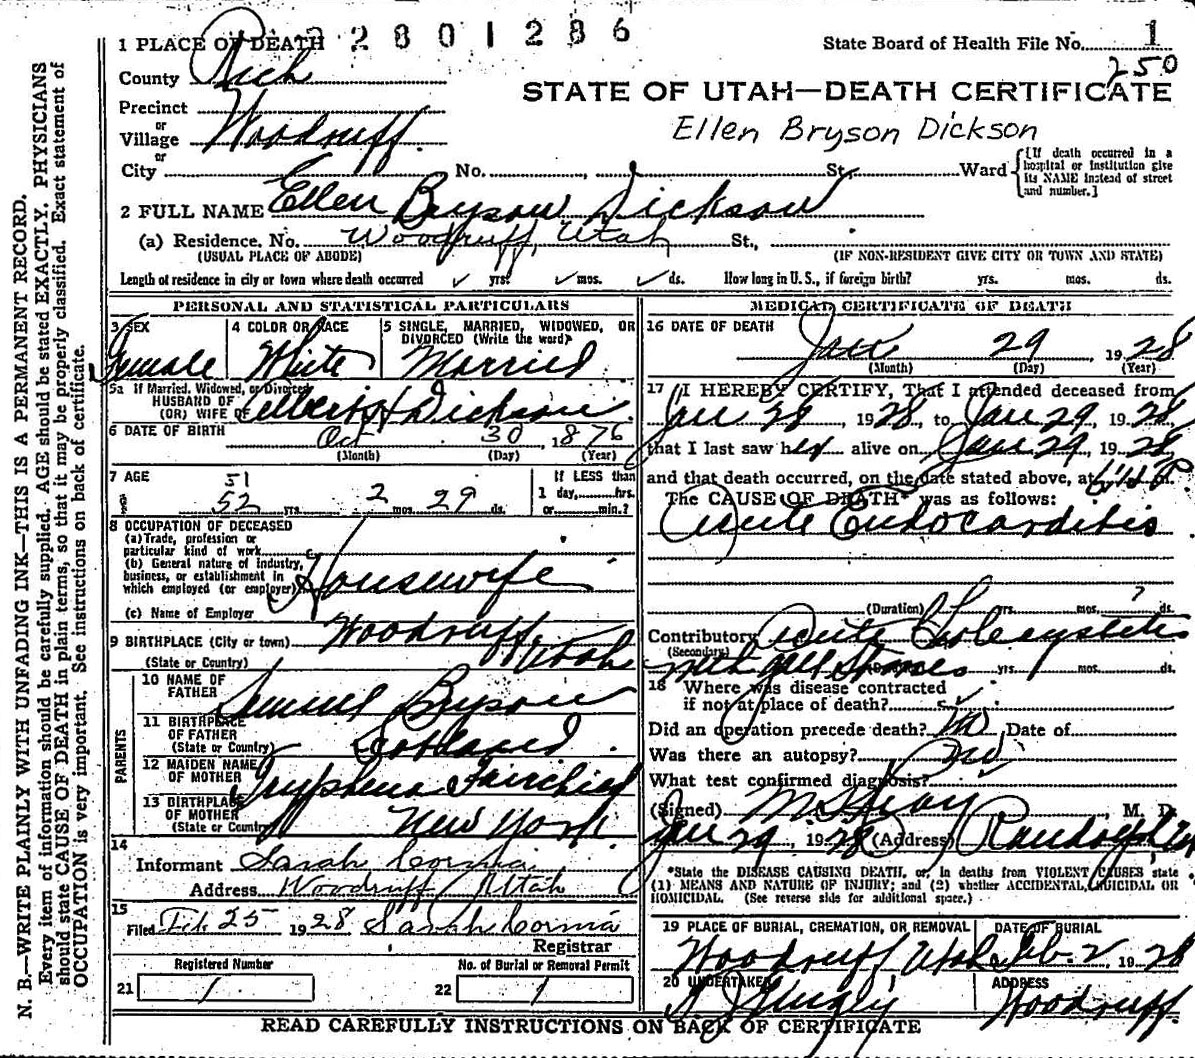 2801286
1 PLACE OF DEATH
State Board of Health File No. 1
250
County Rich
STATE OF UTAH—DEATH CERTIFICATE
Precinct
or
Village Woodruff
or
Ellen Bryson Dickson
City No. St. Ward
[If death occurred in a hospital or institution give its NAME instead of street and number.]
2 FULL NAME Ellen Bryson Dickson
(a) Residence. No. Woodruff, Utah St.,
(USUAL PLACE OF ABODE) (IF NON-RESIDENT GIVE CITY OR TOWN AND STATE)
Length of residence in city or town where death occurred yrs. mos. ds. How long in U. S., if foreign birth? yrs. mos. ds.
PERSONAL AND STATISTICAL PARTICULARS
3 SEX 4 COLOR OR RACE 5 SINGLE, MARRIED, WIDOWED, OR DIVORCED (Write the word)
Female White Married
5a If Married, Widowed, or Divorced
HUSBAND OF
(OR) WIFE OF Albert H Dickson
6 DATE OF BIRTH Oct 30, 1876
(Month) (Day) (Year)
7 AGE
51
52 yrs. 2 mos. 29 ds.
If LESS than
1 day, hrs.
or min.?
8 OCCUPATION OF DECEASED
(a) Trade, profession or
particular kind of work
(b) General nature of industry,
business, or establishment in
which employed (or employer) Housewife
(c) Name of Employer
9 BIRTHPLACE (City or town) Woodruff,
(State or Country) Utah
PARENTS
10 NAME OF
FATHER Samuel Bryson
11 BIRTHPLACE
OF FATHER
(State or Country) Scotland
12 MAIDEN NAME
OF MOTHER Tryphena Fairchild
13 BIRTHPLACE
OF MOTHER
(State or Country) New York
14
Informant Sarah Cornia
Address Woodruff, Utah
15
Filed Feb. 25 1928. Sarah Cornia
Registrar
Registered Number No. of Burial or Removal Permit
21 1 22 1
MEDICAL CERTIFICATE OF DEATH
16 DATE OF DEATH
Jan 29, 1928
(Month) (Day) (Year)
17 I HEREBY CERTIFY, That I attended deceased from
Jan 28, 1928, to Jan 29, 1928,
that I last saw her alive on Jan 29, 1928,
and that death occurred, on the date stated above, at
The CAUSE OF DEATH* was as follows:
Acute Endocarditis
(Duration) yrs. mos. ? ds.
Contributory Acute Cholecystitis
(Secondary)
with gall stones yrs. mos. ds.
18 Where was disease contracted
if not at place of death?
Did an operation precede death? no Date of
Was there an autopsy? no
What test confirmed diagnosis?
(Signed) M. D.
Jan 29, 1928 (Address) Randolph Ut
*State the DISEASE CAUSING DEATH, or, in deaths from VIOLENT CAUSES state
(1) MEANS AND NATURE OF INJURY; and (2) whether ACCIDENTAL, SUICIDAL OR
HOMICIDAL. (See reverse side for additional space.)
19 PLACE OF BURIAL, CREMATION, OR REMOVAL DATE OF BURIAL
Woodruff Utah Feb. 2, 1928
20 UNDERTAKER ADDRESS
Woodruff.
READ CAREFULLY INSTRUCTIONS ON BACK OF CERTIFICATE
N. B.—WRITE PLAINLY WITH UNFADING INK—THIS IS A PERMANENT RECORD.
Every item of information should be carefully supplied. AGE should be stated EXACTLY. PHYSICIANS
should state CAUSE OF DEATH in plain terms, so that it may be properly classified. Exact statement of
OCCUPATION is very important. See instructions on back of certificate.